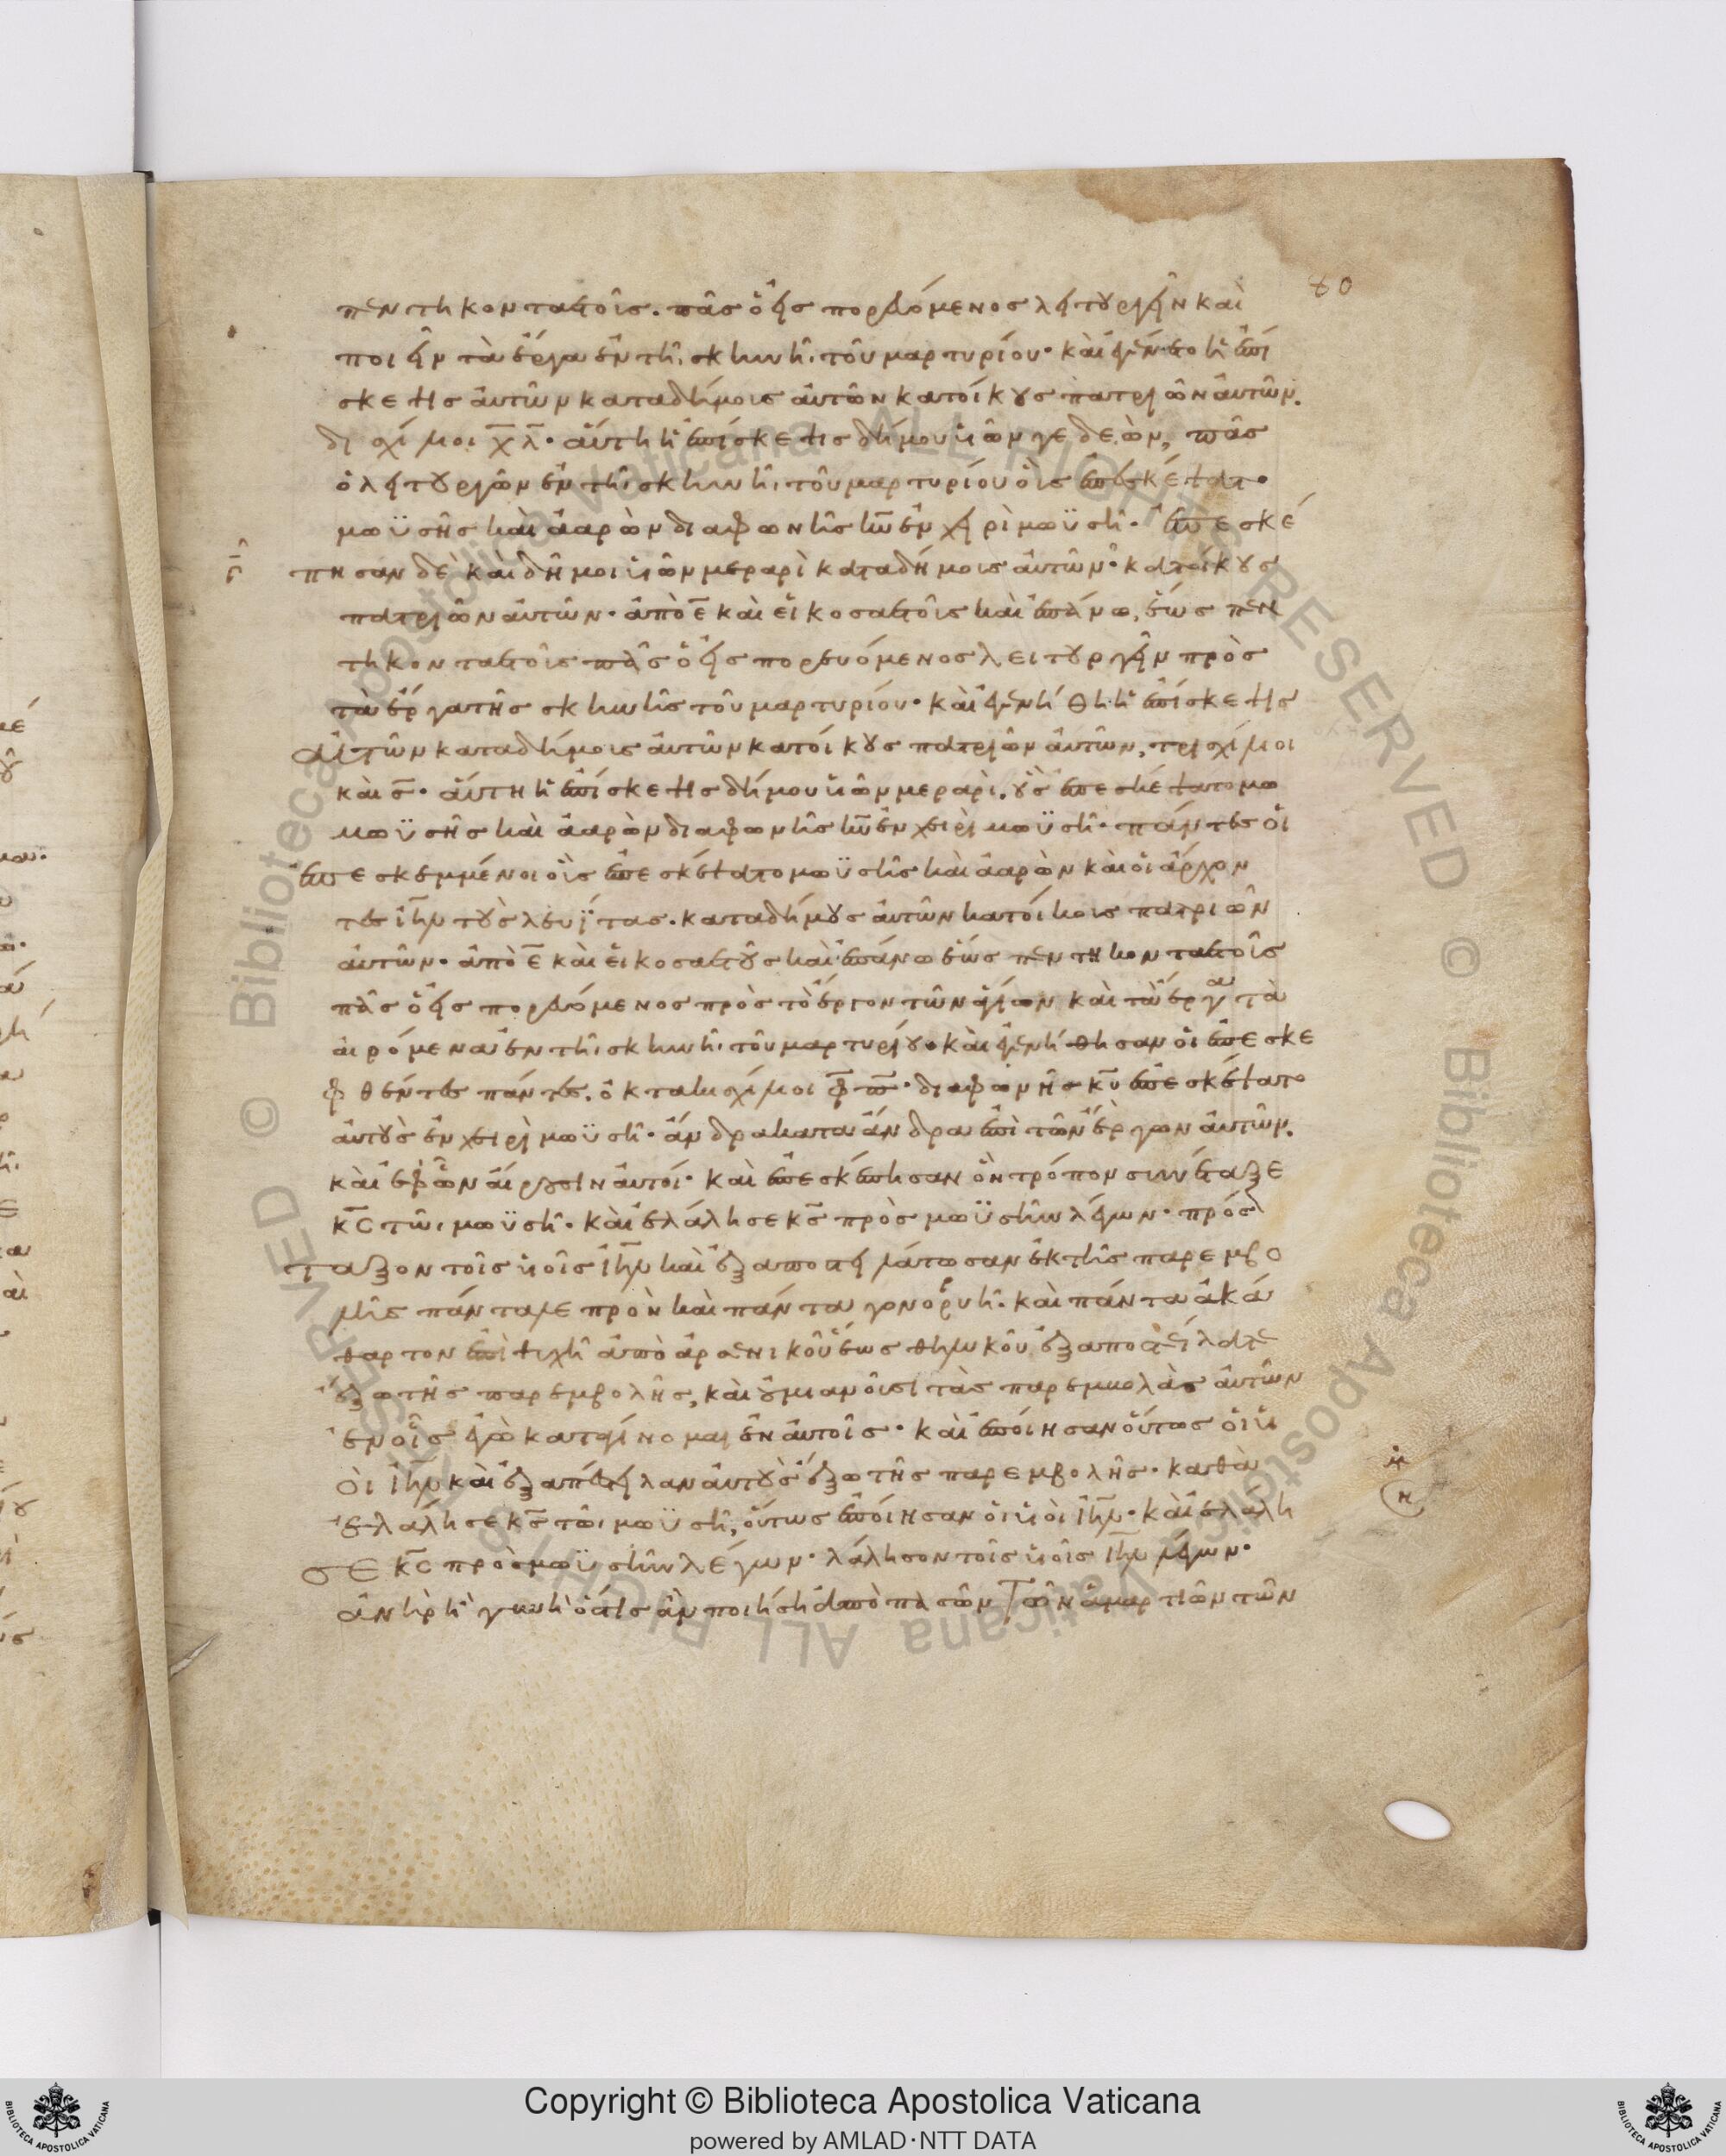 80
πεντηκονταετοῦς. πᾶς ὁ εἰσπορευόμενος λειτουργεῖν καὶ
ποιεῖν τὰ ἔργα ἐν τῆι σκηνῆι τοῦ μαρτυρίου· καὶ ἐγένετο ἡ ἐπί
σκεψις αὐτῶν κατα δήμοις αὐτῶν κατ οίκους πατριῶν αὐτῶν.
δισχίλιοι χ̅ λ̅· αὕτη ἡ ἐπίσκεψις δήμου υἱῶν γεδεὼν, πᾶς
ὁ λειτουργῶν ἐν τῆι σκηνῆι τοῦ μαρτυρίου οὓς ἐπεσκέψατο
μωϋσῆς καὶ ἀαρὼν δια φωνῆς κ̅υ̅ ἐν χειρὶ μωϋσῆ· ἐπεσκέ
πησαν δὲ καὶ δῆμοι υἱῶν μεραρὶ κατα δήμοις αὐτῶν· κατ οίκους
πατριῶν αὐτῶν· ἀπὸ ε̅ καὶ εἰκοσαετοῦς καὶ ἐπάνω, ἕως πεν
τηκονταετοῦς πᾶς ὁ εἰσπορευόμενος λειτουργεῖν πρὸς
τὰ ἔργα τῆς σκηνῆς τοῦ μαρτυρίου· καὶ ἐγενήθη ἡ ἐπίσκεψις
αὐτῶν κατα δήμοις αὐτῶν κατ οίκους πατριῶν αὐτῶν, τρισχίλιοι
καὶ σ̅· αὕτη ἡ ἐπίσκεψις δήμου υἱῶν μεραρὶ. οὓς ἐπεσκέψατο μω
μωϋσῆς καὶ ἀαρὼν δια φωνῆς κ̅υ̅ ἐν χειρὶ μωϋσῆ· πάντες οἱ
ἐπεσκεμμένοι οὓς ἐπεσκέψατο μωϋσῆς καὶ ἀαρὼν καὶ οἱ ἄρχον
τες ι̅η̅λ̅ τοὺς λευΐτας. κατα δήμους αὐτῶν κατ οίκοις πατριῶν
αὐτῶν· ἀπὸ ε̅ καὶ εἰκοσαετοῦς καὶ ἐπάνω ἕως πεντηκονταετοῦς
πᾶς ὁ εἰσπορευόμενος πρὸς τὸ ἔργον τῶν ἁγίων καὶ τὰ ἔργα τὰ
αἰρόμενα ἐν τῆι σκηνῆι τοῦ μαρτυρίου· καὶ ἐγενήθησαν οἱ ἐπεσκε
φθέντες πάντες. ὀκτακισχίλιοι φ̅ π̅· δια φωνῆς κ̅υ̅ ἐπεσκέψατο
αὐτοὺς ἐν χειρὶ μωϋσῆ· ἄνδρα κατα ἄνδρα ἐπὶ τῶν ἔργων αὐτῶν.
καὶ ἐφ ὧν αἴρουσιν αὐτοί· καὶ ἐπεσκέπησαν ὃν τρόπον συνέταξε
κ̅ς̅ τῶι μωϋσῆ· καὶ ἐλάλησε κ̅ς̅ πρὸς μωϋσῆν λέγων· πρόσ
ταξον τοῖς υἱοῖς ι̅η̅λ̅ καὶ ἐξαποστειλάτωσαν ἐκ τῆς παρεμβο
λῆς πάντα λεπρὸν καὶ πάντα γονορυῆ. καὶ πάντα ἀκά
θαρτον ἐπὶ ψυχῆ ἀπὸ ἀρσενικοῦ ἕως θηλυκοῦ ἐξαποστείλατε
ἔξω τῆς παρεμβολῆς, καὶ οὐ μιανοῦσι τὰς παρεμβολὰς αὐτῶν
ἐν οἷς ἐγὼ καταγίνομαι ἐν αὐτοῖς· καὶ ἐποίησαν οὕτως οἱ υἱ
οὶ ι̅η̅λ̅ καὶ ἐξαπέστειλαν αὐτοὺς ἔξω τῆς παρεμβολῆς· καθὰ
ἐλάλησε κ̅ς̅ τῶι μωϋσῆ, οὕτως ἐποίησαν οἱ υἱοὶ ι̅η̅λ̅· καὶ ἐλάλη
σε κ̅ς̅ πρὸς μωϋσῆν λέγων· λάλησον τοῖς υἱοῖς ι̅η̅λ̅ λέγων·
ἀνὴρ ἢ γυνὴ ὅστις ἂν ποιήση ἀπὸ πασῶν τῶν ἁμαρτιῶν τῶν
Copyright © Biblioteca Apostolica Vaticana
powered by AMLAD·NTT DATA